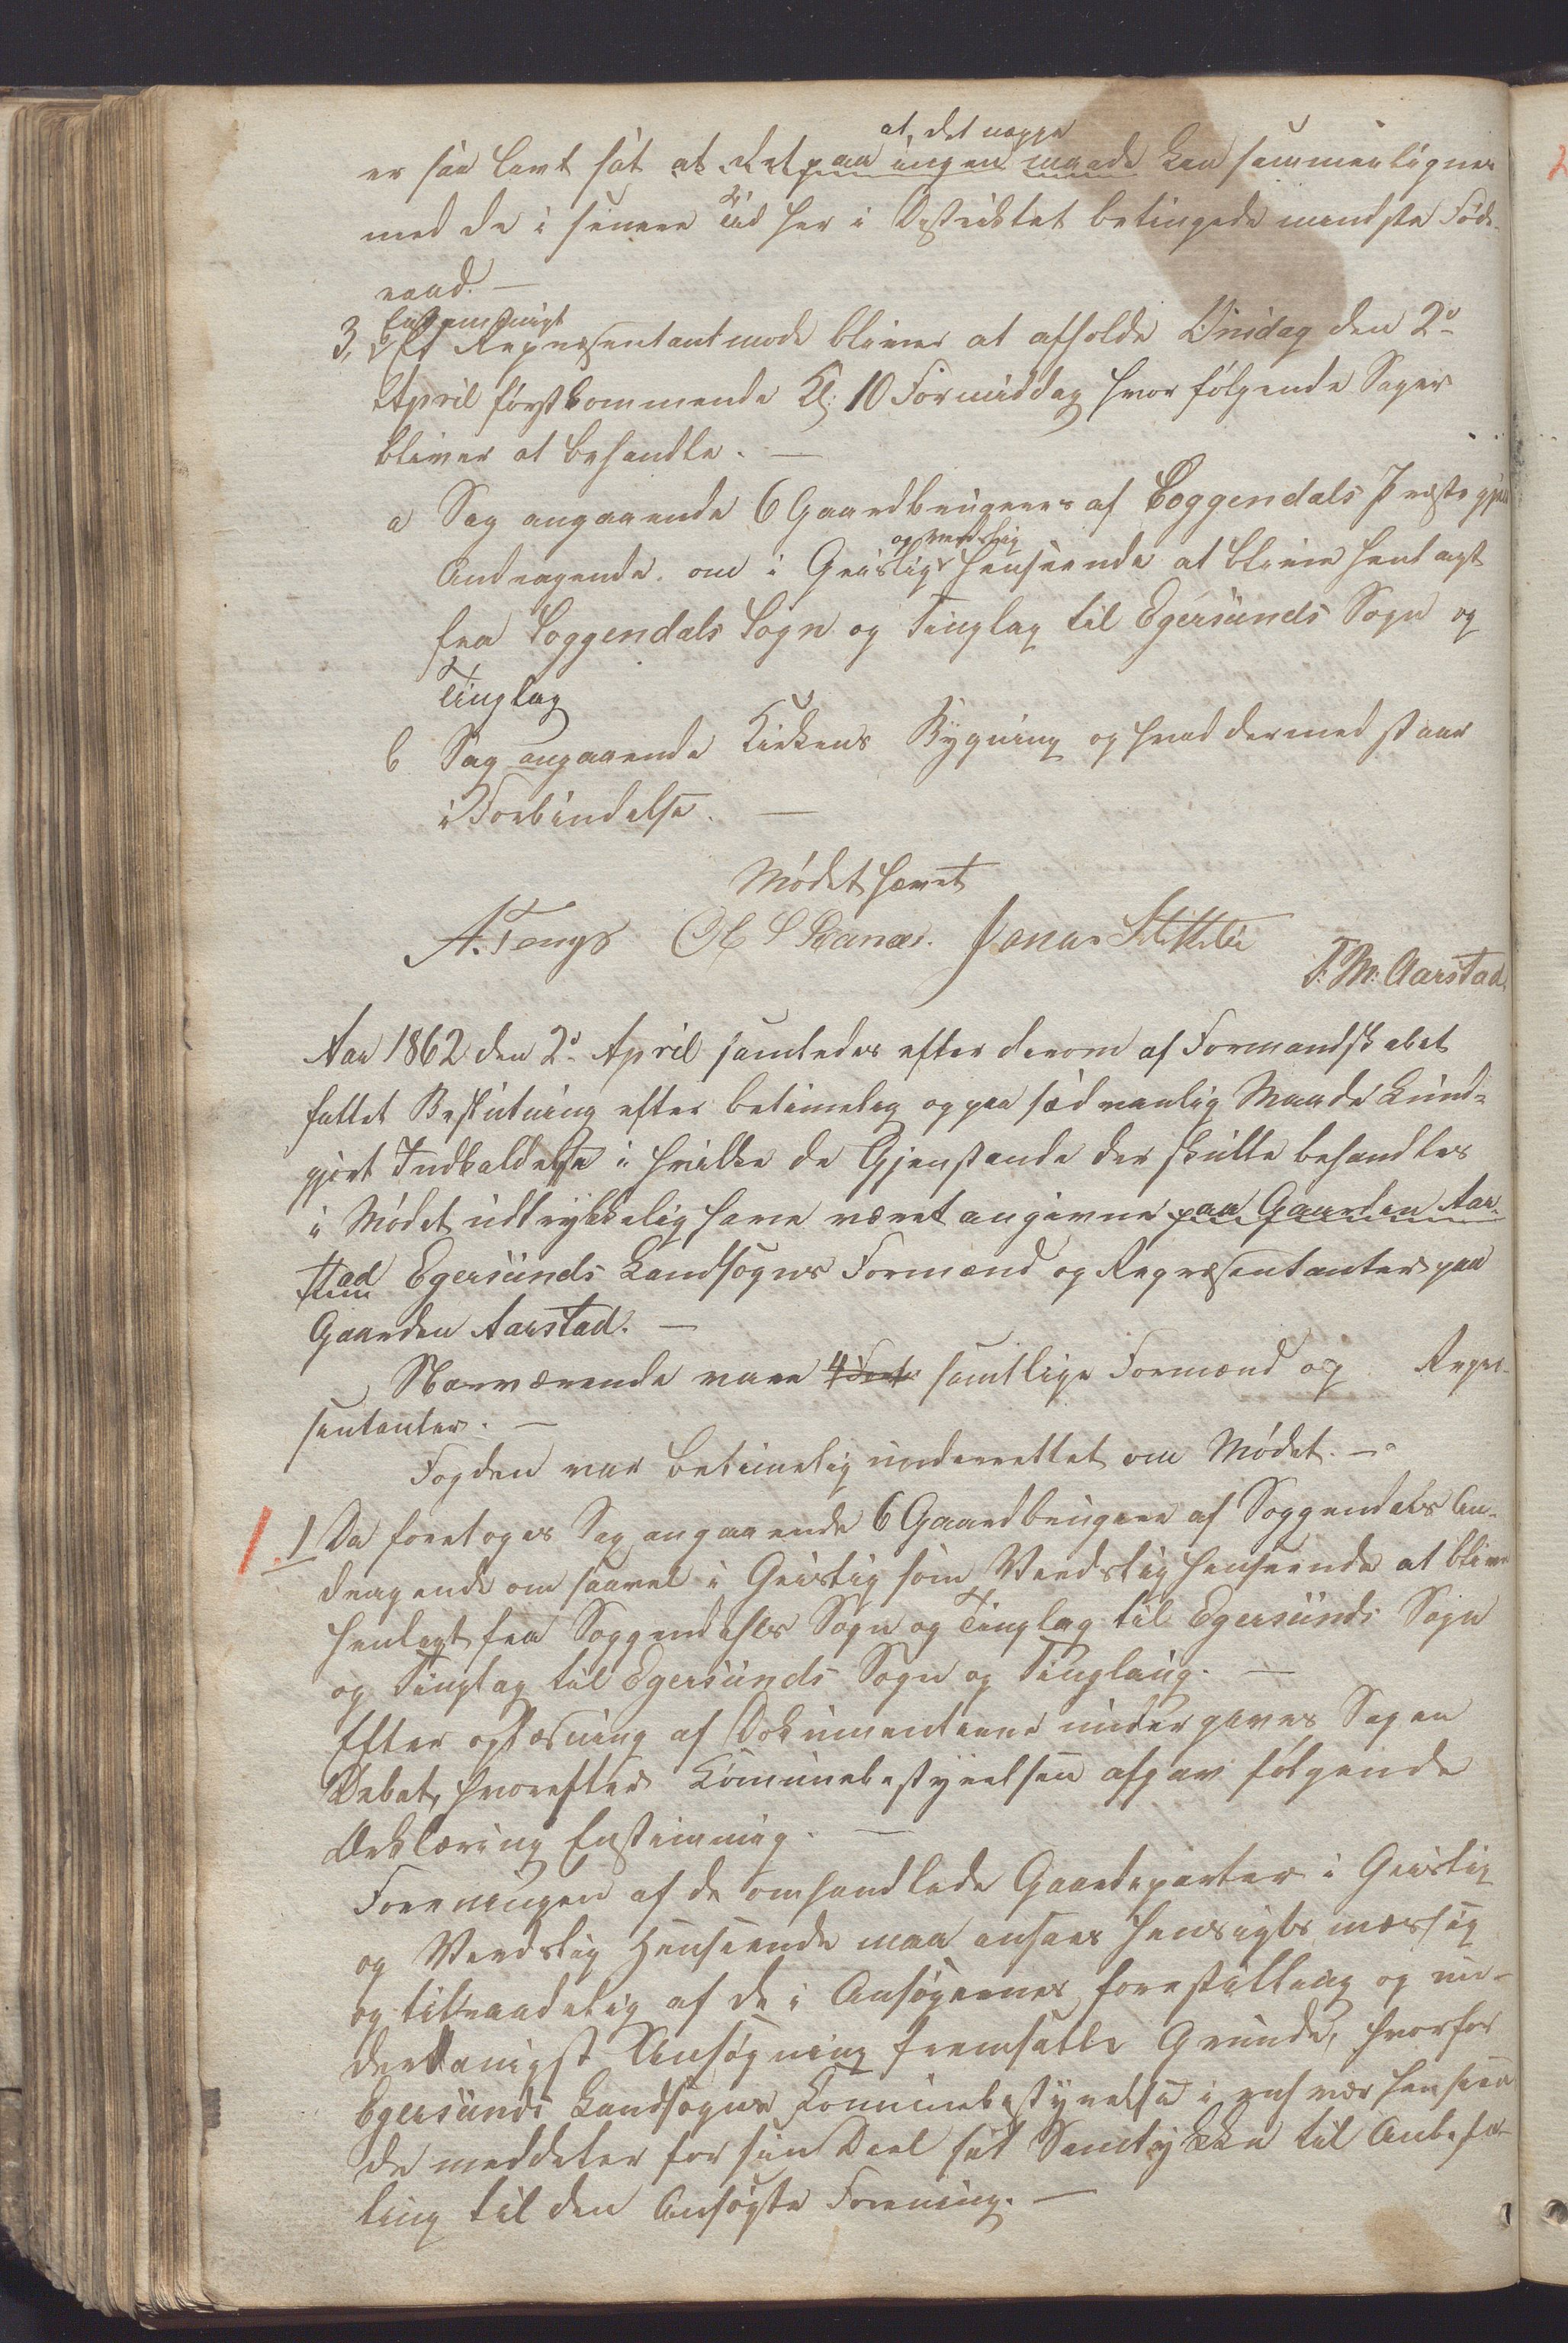 er saa lavt sat at det paa ingen maade kan sammenlignes
at, det neppe
med de i senere Tid her i Destriktet betingede mindste Føde-
raad. —
Enstemmigt
3, Et Repræsentantmøde bliver at afholde Onsdag den 2den
April førstkommende Kl: 10 Formiddag hvor følgende Sager
bliver at behandle. —
a Sag angaaende 6 Gaardbrugeres af Soggendals Præstegjeld
Andragende om i Geistlig Henseende at blive henlagt
og verdslig
fra Soggendals Sogn og Tinglag til Egersunds Sogn og
Tinglag
b Sag angaaende Kirkens Bygning og hvad dermed staar
i Forbindelse. —
Mødet hævet
A. Tengs Ol S Svanæs. Jonas
T. M. Aarstad
Aar 1862 den 2den April samledes efter derom af Formandskabet
fattet Beslutning efter betimelig og paa sædvanlig Maade kund-
gjort Indkaldelse i hvilke de Gjenstande der skulle behandles
i Mødet udtrykkelig have været angivne paa Gaarden Aar-
stad Egersunds Landsogns Formænd og Repræsentanter paa
Gaarden Aarstad. —
Nærværende vare 4 For samtlige Formænd og Repræ-
sentanter. —
Fogden var betimelig underrettet om Mødet. —
1 Da foretoges Sag angaaende 6 Gaardbrugere af Soggendals An-
dragende om saavel i Geistlig som Verdslig Henseende at blive
henlagt fra Soggendahls Sogn og Tinglag til Egersunds Sogn
og Tinglag til Egersunds Sogn og Tinglaug. —
Efter oplæsning af Dokumenterne undergaves Sagen
Debat, hvorefter Kommunebestyrelsen afgav følgende
Erklæring Enstemmig. —
Foreningen af de omhandlede Gaardeparter i Geistlig
og Verdslig Henseende maa ansees hensigtsmæssig
og tilraadelig af de i Ansøgernes forestilling og un-
derdanigst Ansøgning fremsatte Grunde, hvorfor
Egersunds Landsogns Kommunebestyrelse i enhver Henseen-
de meddeler for sin Deel sit Samtykke til Anbefa-
ling til den Ansøgte Forening. —